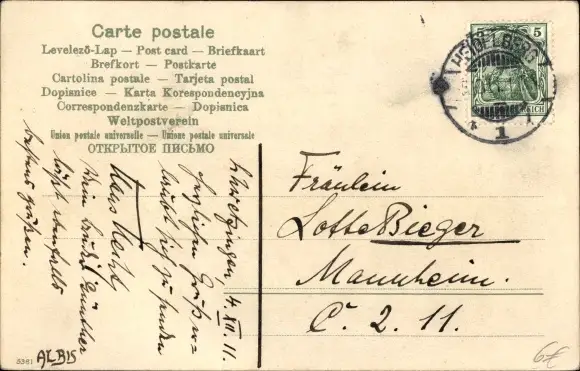 Carte postale
Levelező-Lap — Post card — Briefkaart
Brefkort — Postkarte
Cartolina postale — Tarjeta postal
Dopisnice — Karta Korespondencyjna
Correspondenzkarte — Dopisnica
Weltpostverein
Union postale universelle — Unione postale universale
ОТКРЫТОЕ ПИСЬМО
5
HEIDELBERG
1
REICH
4. XII. 11.
herzlichen Grüßen
Hans
Dein Günther
läßt ebenfalls
bestens grüßen.
Fräulein
Lotte Bieger
Mannheim.
C. 2. 11.
5361
ALBIS
6€